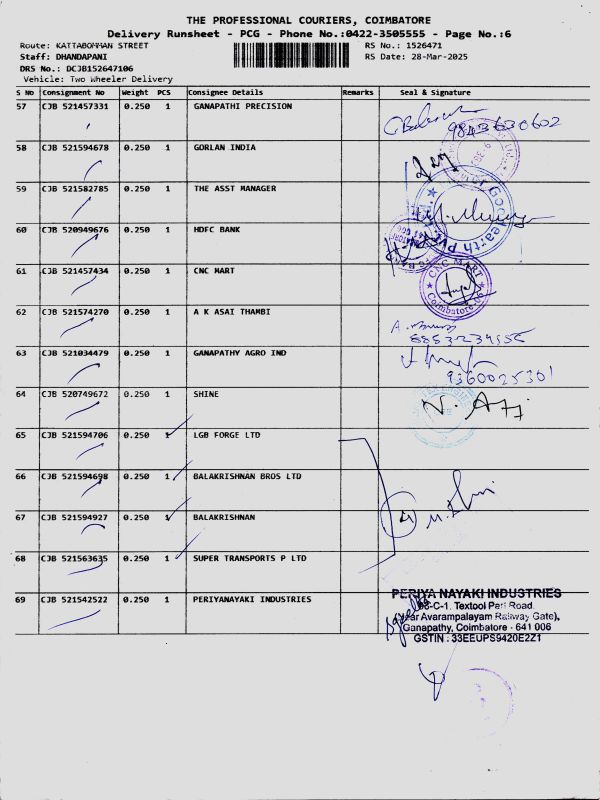 THE PROFESSIONAL COURIERS, COIMBATORE
Delivery Runsheet - PCG - Phone No.:0422-3505555 - Page No.:6
Route: KATTABOMMAN STREET
RS No.: 1526471
Staff: DHANDAPANI
RS Date: 28-Mar-2025
DRS No.: DCJB152647106
Vehicle: Two Wheeler Delivery
S No Consignment No Weight PCS Consignee Details Remarks Seal & Signature
57 CJB 521457331 0.250 1 GANAPATHI PRECISION
9843630602
58 CJB 521594678 0.250 1 GORLAN INDIA
59 CJB 521582785 0.250 1 THE ASST MANAGER
60 CJB 520949676 0.250 1 HDFC BANK
61 CJB 521457434 0.250 1 CNC MART
CNC MART
Coimbatore
62 CJB 521574270 0.250 1 A K ASAI THAMBI
63 CJB 521034479 0.250 1 GANAPATHY AGRO IND
9360025301
64 CJB 520749672 0.250 1 SHINE
65 CJB 521594706 0.250 1 LGB FORGE LTD
66 CJB 521594698 0.250 1 BALAKRISHNAN BROS LTD
67 CJB 521594927 0.250 1 BALAKRISHNAN
68 CJB 521563635 0.250 1 SUPER TRANSPORTS P LTD
69 CJB 521542522 0.250 1 PERIYANAYAKI INDUSTRIES
PERIYA NAYAKI INDUSTRIES
-C-1. Textool Peri Road.
Avarampalayam Railway Gate),
Ganapathy, Coimbatore - 641 006
GSTIN : 33EEUPS9420E2Z1